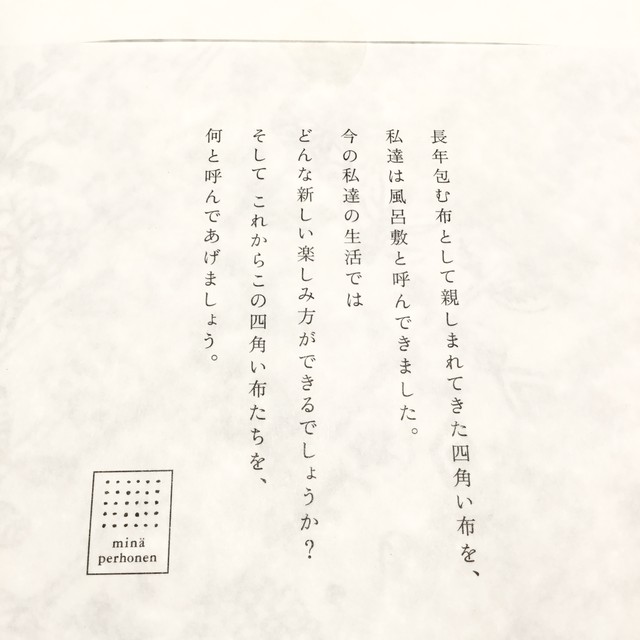 長年包む布として親しまれてきた四角い布を、
私達は風呂敷と呼んできました。
今の私達の生活では
どんな新しい楽しみ方ができるでしょうか?
そして これからこの四角い布たちを、
何と呼んであげましょう。
minä
perhonen